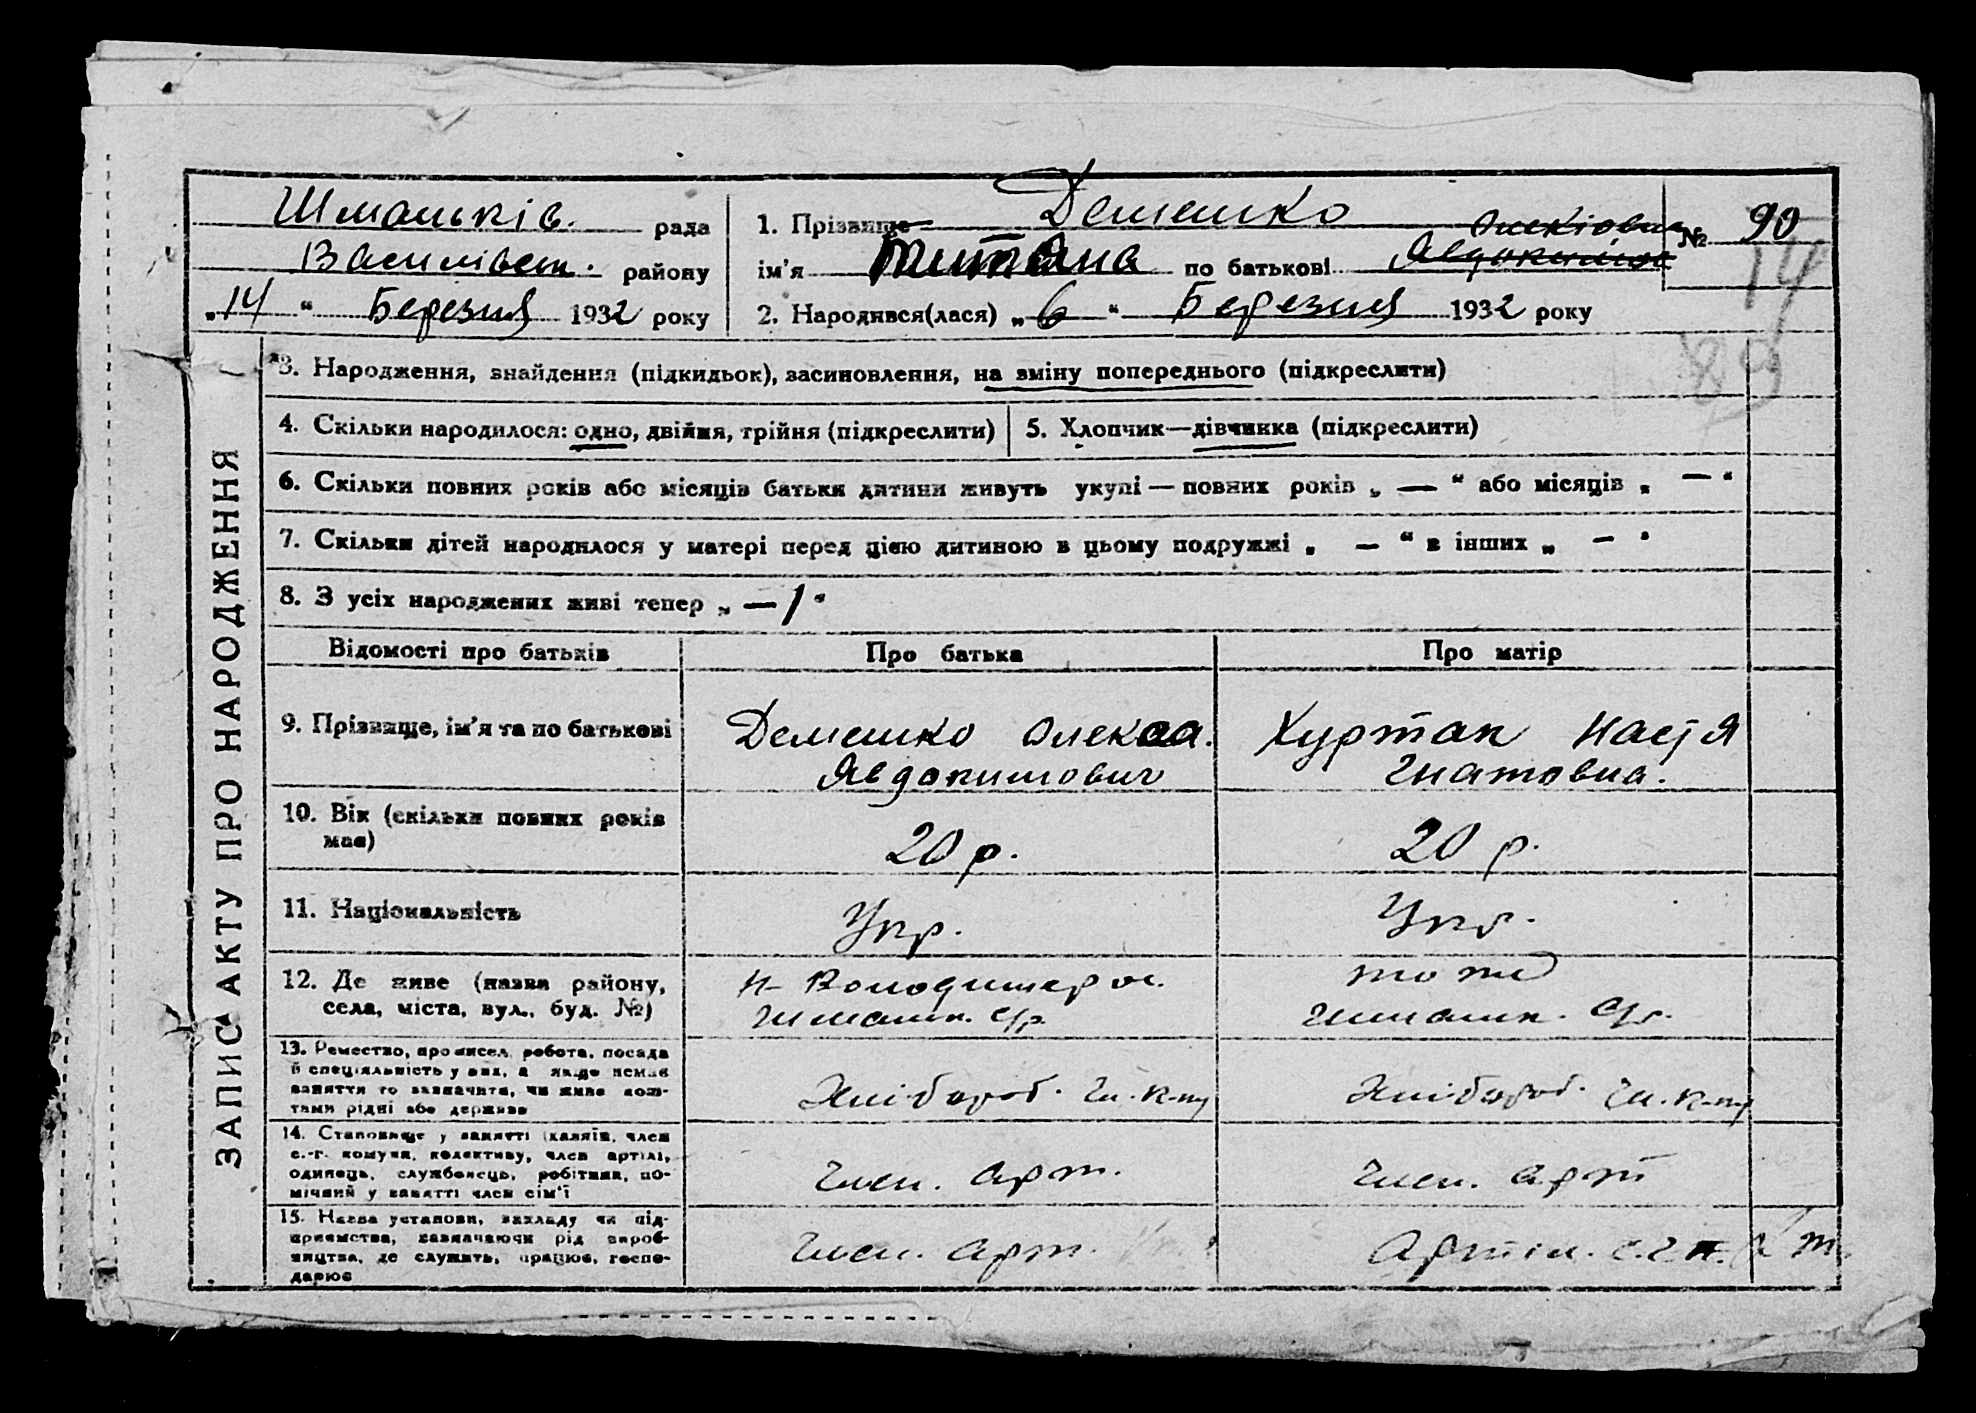 ЗАПИС АКТУ ПРО НАРОДЖЕННЯ
Шмальків. рада
Василівськ. району
„14“ Березня 1932 року
1. Прізвище Демешко
ім'я по батькові Олексіовна Явдокимов
№ 90
14
89
2. Народився(лася) „6“ Березня 1932 року
3. Народження, знайдення (підкидьок), засиновлення, на зміну попереднього (підкреслити)
4. Скільки народилося: одно, двійня, трійня (підкреслити)
5. Хлопчик—дівчинка (підкреслити)
6. Скільки повних років або місяців батьки дитини живуть укупі — повних років „ — “ або місяців „ — “
7. Скільки дітей народилося у матері перед цією дитиною в цьому подружжі „ — “ в інших „ — “
8. З усіх народжених живі тепер „ —1“
Відомості про батьків
Про батька
Про матір
9. Прізвище, ім'я та по батькові
Демешко Олекса.
Явдокимович
Хуртак Настя
Гнатовна.
10. Вік (скільки повних років
має)
20 р.
20 р.
11. Національність
Укр.
Укр.
12. Де живе (назва району,
села, міста, вул., буд. №)
н-Володимеров.
Шмальк. с/р
то же
Шмальк. с/р.
13. Ремество, промисел, робота, посада
й спеціяльність у них, а якщо немає
заняття то зазначити, чи живе кош-
тами рідні або держави
Хлібороб.
Хлібороб.
14. Становище у занятті (хазяїн, член
с.-г. комуни, колективу, член артілі,
одинець, службовець, робітник, по-
мічний у занятті член сім'ї
Член. арт.
Член. арт
15. Назва установи, закладу чи під-
приємства, зазначаючи рід вироб-
ництва, де служить, працює, госпо-
дарює
Член. арт.
Артіл.